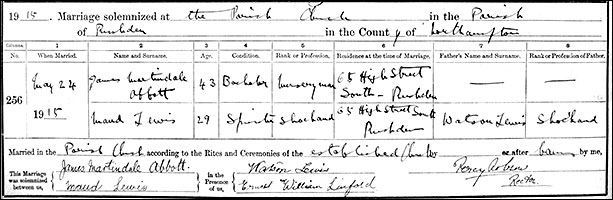 1915. Marriage solemnized at the Parish Church in the Parish
of Rushden in the County of Northampton
Columns 1 2 3 4 5 6 7 8
No. When Married. Name and Surname. Age. Condition. Rank or Profession. Residence at the time of Marriage. Father's Name and Surname. Rank or Profession of Father.
256 May 24 1915 James Martindale Abbott 43 Bachelor Nurseryman 65 High Street South - Rushden — —
Maud Lewis 29 Spinster Shoehand 65 High Street South Rushden Watson Lewis Shoehand
Married in the Parish Church according to the Rites and Ceremonies of the Established Church by or after banns by me,
This Marriage was solemnized between us, James Martindale Abbott. Maud Lewis
in the Presence of us, Watson Lewis Ernest William Linfold
Percy
Rector